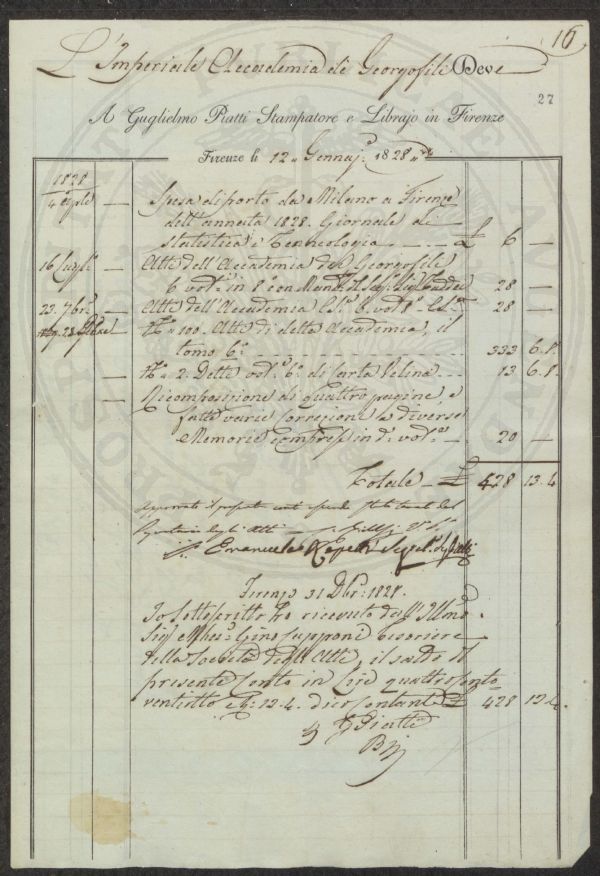 16
L'Imperiale Accademia di Georgofili Deve
27
A Guglielmo Piatti Stampatore e Librajo in Firenze
Firenze li 12 Gennaj: 1828
1828
4 Aple — Spesa di porto da Milano a Firenze
dell'annata 1828. Giornale di
Statistica e Tecnologia £ 6 —
16 Lugl: — Atti dell'Accademia dei Georgofili
6 vol: in 8° con 28 —
23. 7bre — Atti dell'Accademia Sd: 6. vol: 8° 28 —
N° 100. Atti di detta Accademia, il
tomo 6° 333 6.8
— N° 2. Detti vol: 6° di carta Velina 13 6.8
— Ricomposizione di quattro pagine, e
fatte varie correzioni a diverse
Memorie comprese in d: vol: 20 —
Totale £ 428 13.4
Approvato il presente conto
degli Atti
Emanuele Repetti
Firenze 31 Dbr: 1828.
Io sottoscritto ho ricevuto dall'Illmo
Sig: Gino Capponi Tesoriere
della Società degli Atti, il saldo del
presente Conto in Lire quattrocento
ventotto e 13.4. dico contanti £ 428 13.4.
G Piatti